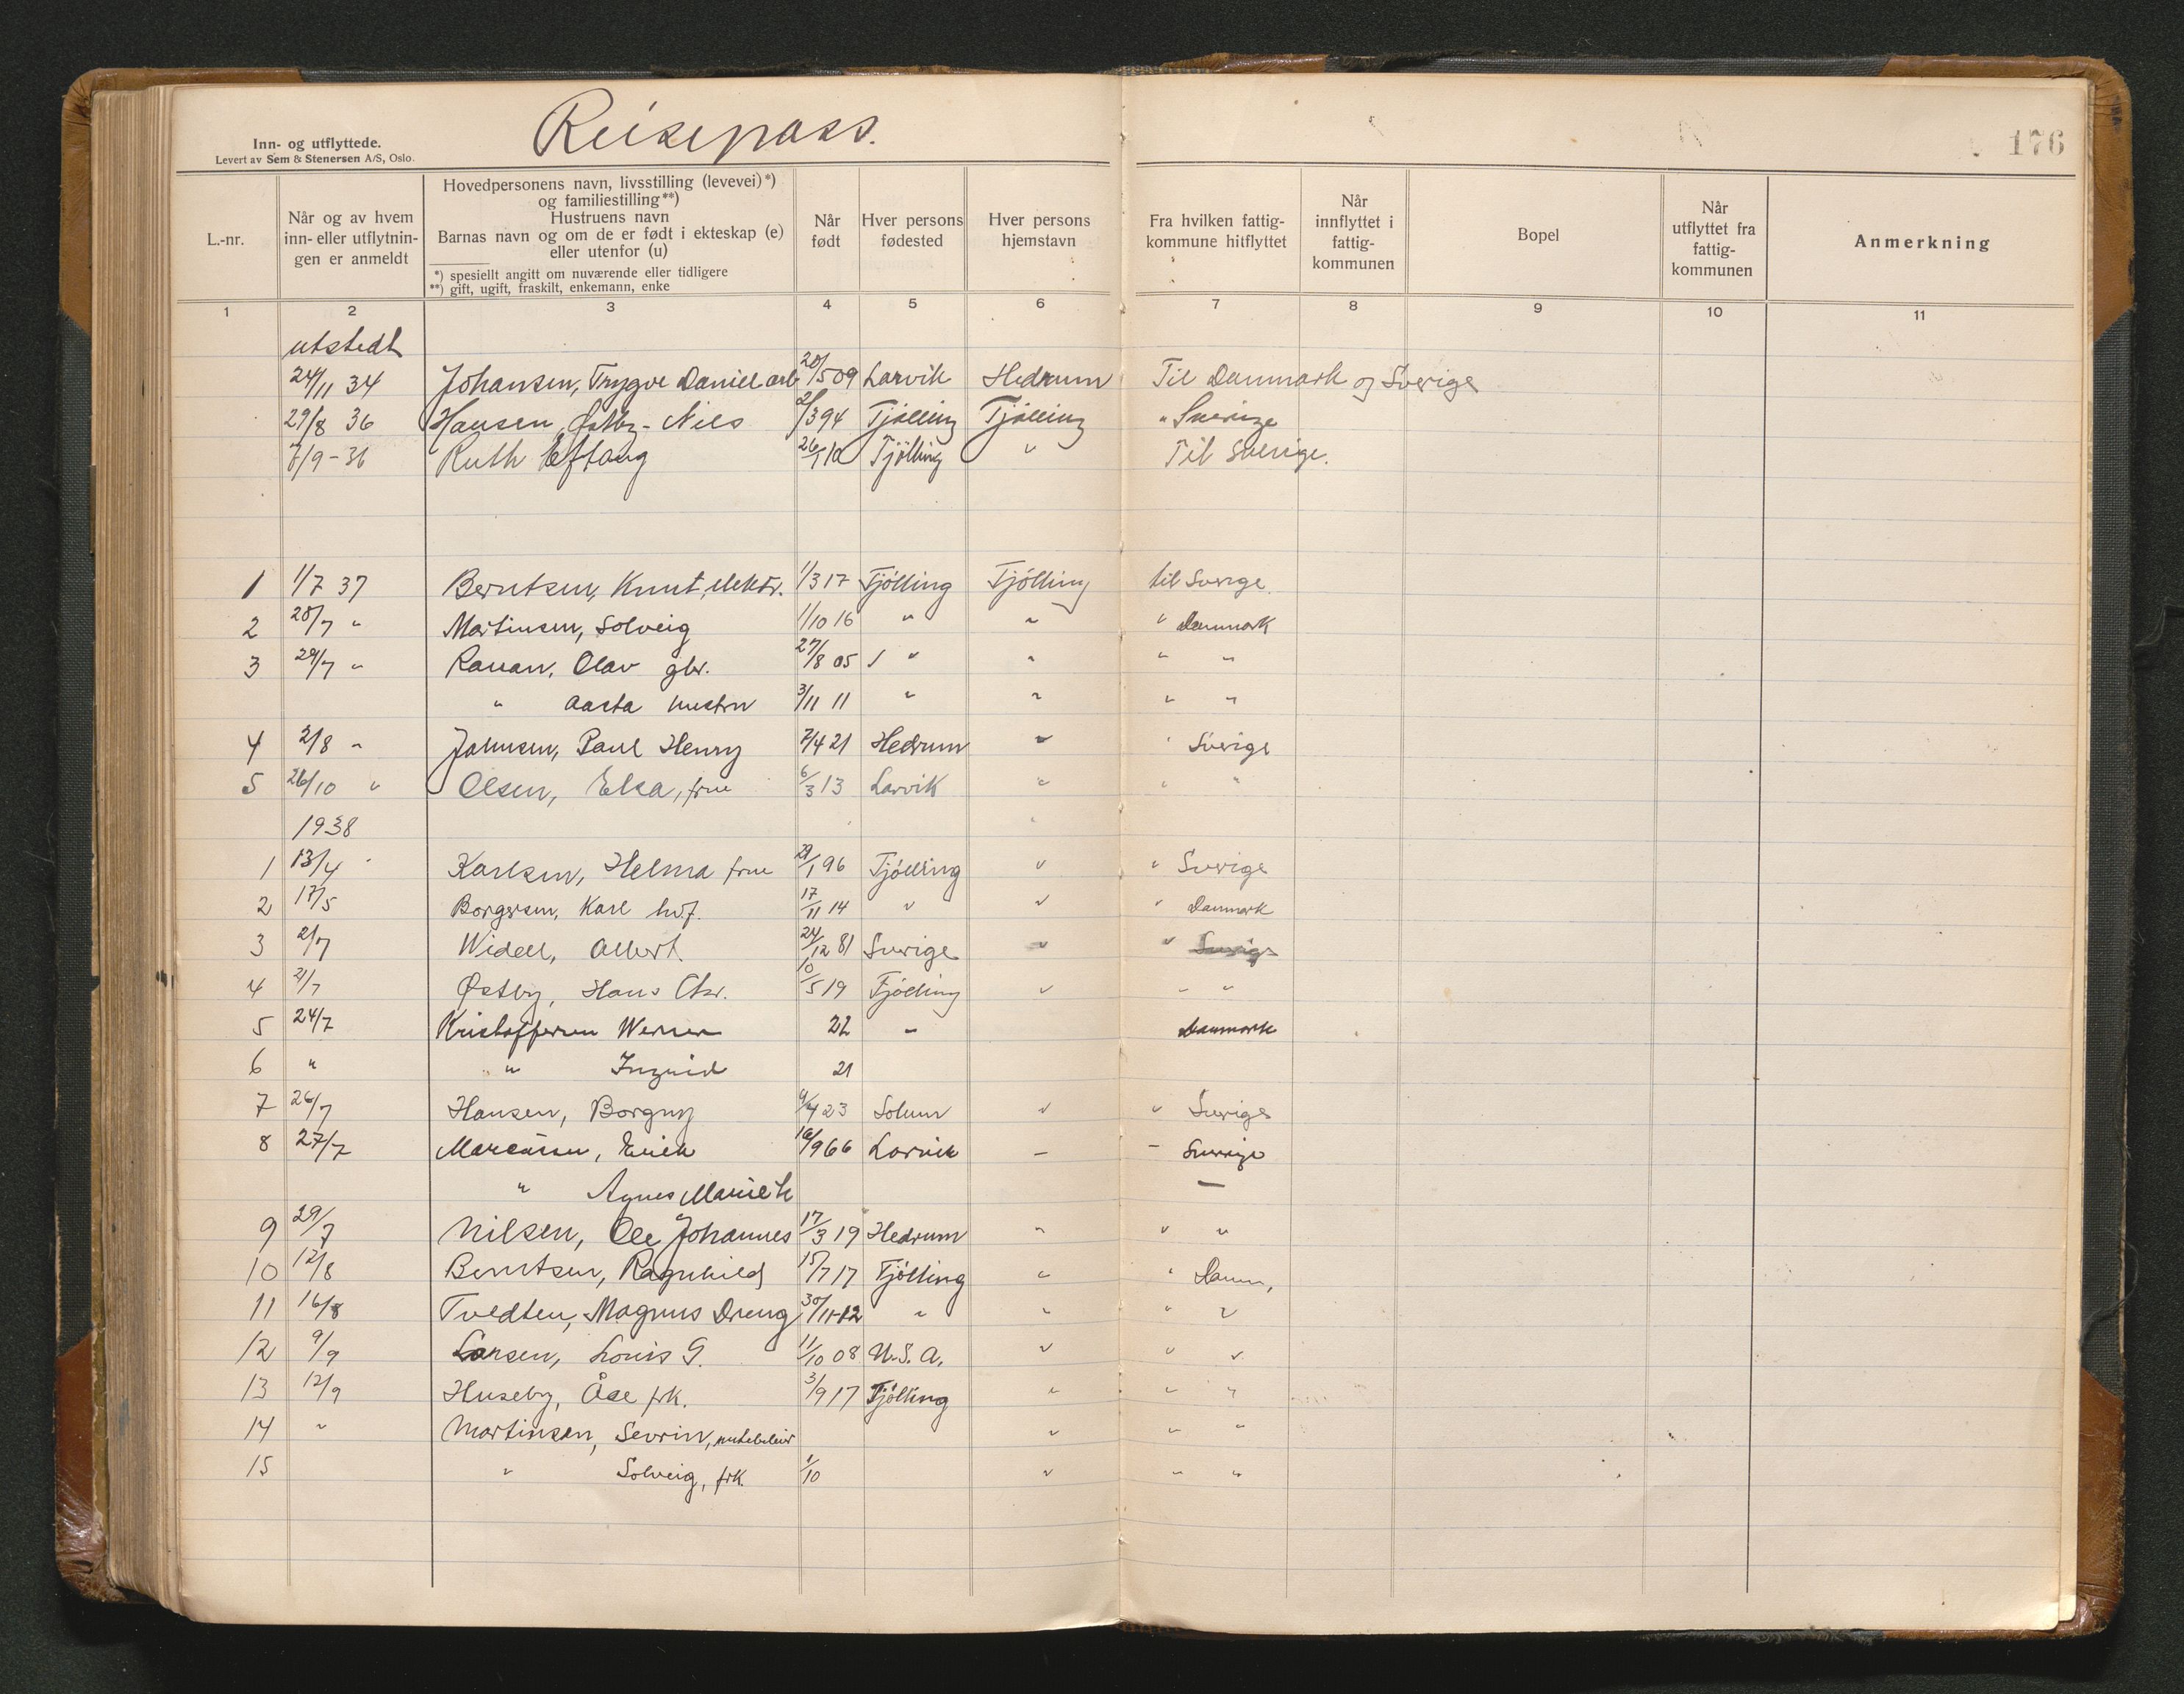 Reisepass.
176
Inn- og utflyttede.
Levert av Sem & Stenersen A/S, Oslo.
L.-nr.
Når og av hvem
inn- eller utflytnin-
gen er anmeldt
Hovedpersonens navn, livsstilling (levevei)*)
og familiestilling**)
Hustruens navn
Barnas navn og om de er født i ekteskap (e)
eller utenfor (u)
*) spesielt angitt om nuværende eller tidligere
**) gift, ugift, fraskilt, enkemann, enke
Når
født
Hver persons
fødested
Hver persons
hjemstavn
Fra hvilken fattig-
kommune hitflyttet
Når
innflyttet i
fattig-
kommunen
Bopel
Når
utflyttet fra
fattig-
kommunen
Anmerkning
1 2 3 4 5 6 7 8 9 10 11
utstedt
24/11 34 Johansen, Trygve Daniel arb 20/5 09 Larvik Hedrum Til Danmark og Sverige
29/8 36 Hansen, Østby - Nils 2/3 94 Tjølling Tjølling " Sverige
7/9-36 Ruth Eftang 26/1 10 Tjölling " Til Sverige.
1 1/7 37 Berntsen, Knut, elektr. 1/3 17 Tjölling Tjölling til Sverige.
2 20/7 " Martinsen, Solveig 1/10 16 " " " Danmark
3 29/7 " Rauan, Olav gbr. 27/8 05 " " " "
" Aasta hustru 3/11 11 " " " "
4 2/8 " Johnsen, Paul Henry 7/4 21 Hedrum " " Sverige
5 26/10 " Olsen, Elsa, frue 6/3 13 Larvik " " "
1938
1 13/4 " Karlsen, Helma frue 29/1 96 Tjölling " " Sverige
2 17/5 Borgersen, Karl hvf. 17/11 14 " " " Danmark
3 2/7 Widell, Albert. 24/12 81 Sverige " " Sverige
4 21/7 Østby, Hans Chr. 10/5 19 Tjölling " " "
5 24/7 Kristoffersen Werner 22 " Danmark
6 " " Ingrid 21
7 26/7 Hansen, Borgny 9/4 23 Solum " " Sverige
8 27/7 Marcussen, Erich 16/9 66 Larvik " " Sverige
" Agnes Marie "
9 29/7 Nilsen, Ole Johannes 17/3 19 Hedrum " " "
10 12/8 Berntsen, Ragnhild 15/7 17 Tjölling " " Danm,
11 16/8 Tvedten, Magnus Dreng 30/11-12 " " " "
12 9/9 Larsen, Louis G. 11/10 08 U.S.A. " " "
13 12/9 Huseby, Åse frk. 3/9 17 Tjölling " " "
14 " Martinsen, Sevrin, " " "
15 " Solveig, frk. 1/10 " " "